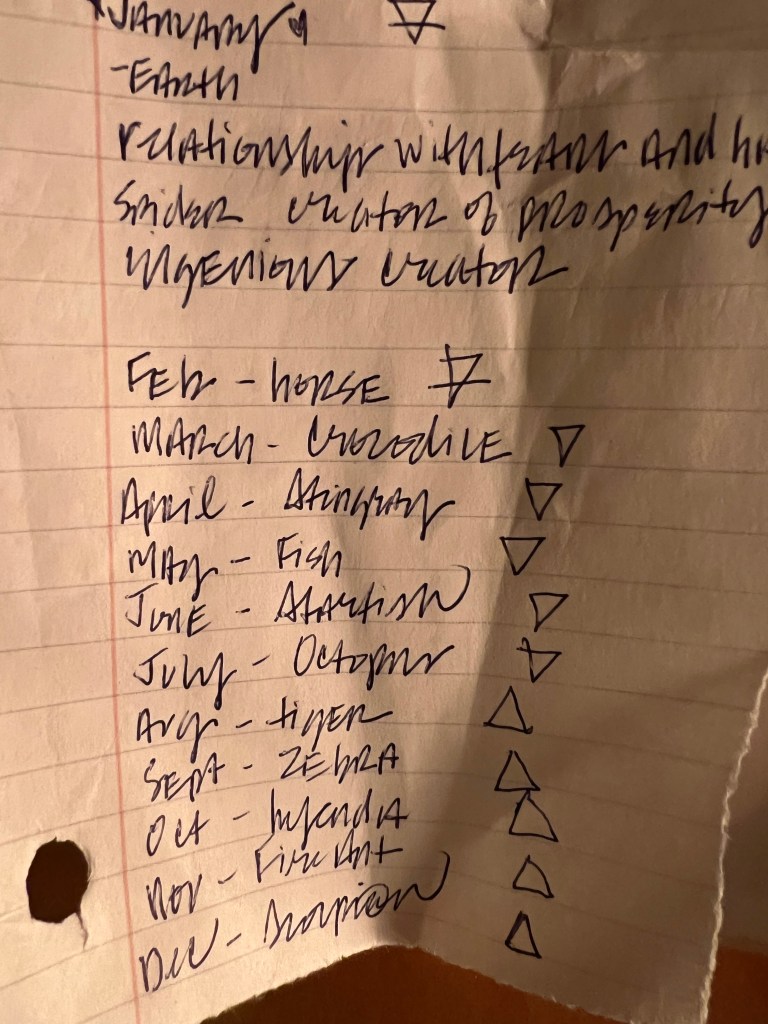 January
-Earth
relationship with fear and
Spider creator of prosperity
ingenious creator
Feb - horse
March - Crocodile
April - Stingray
May - Fish
June - Starfish
July - Octopus
Aug - tiger
Sept - Zebra
Oct - hyenda
Nov - Fire Ant
Dec - Scorpion